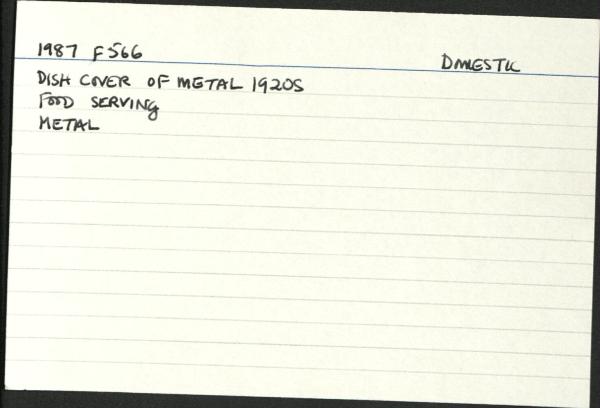 1987 F566
DOMESTIC
DISH COVER OF METAL 1920S
FOOD SERVING
METAL